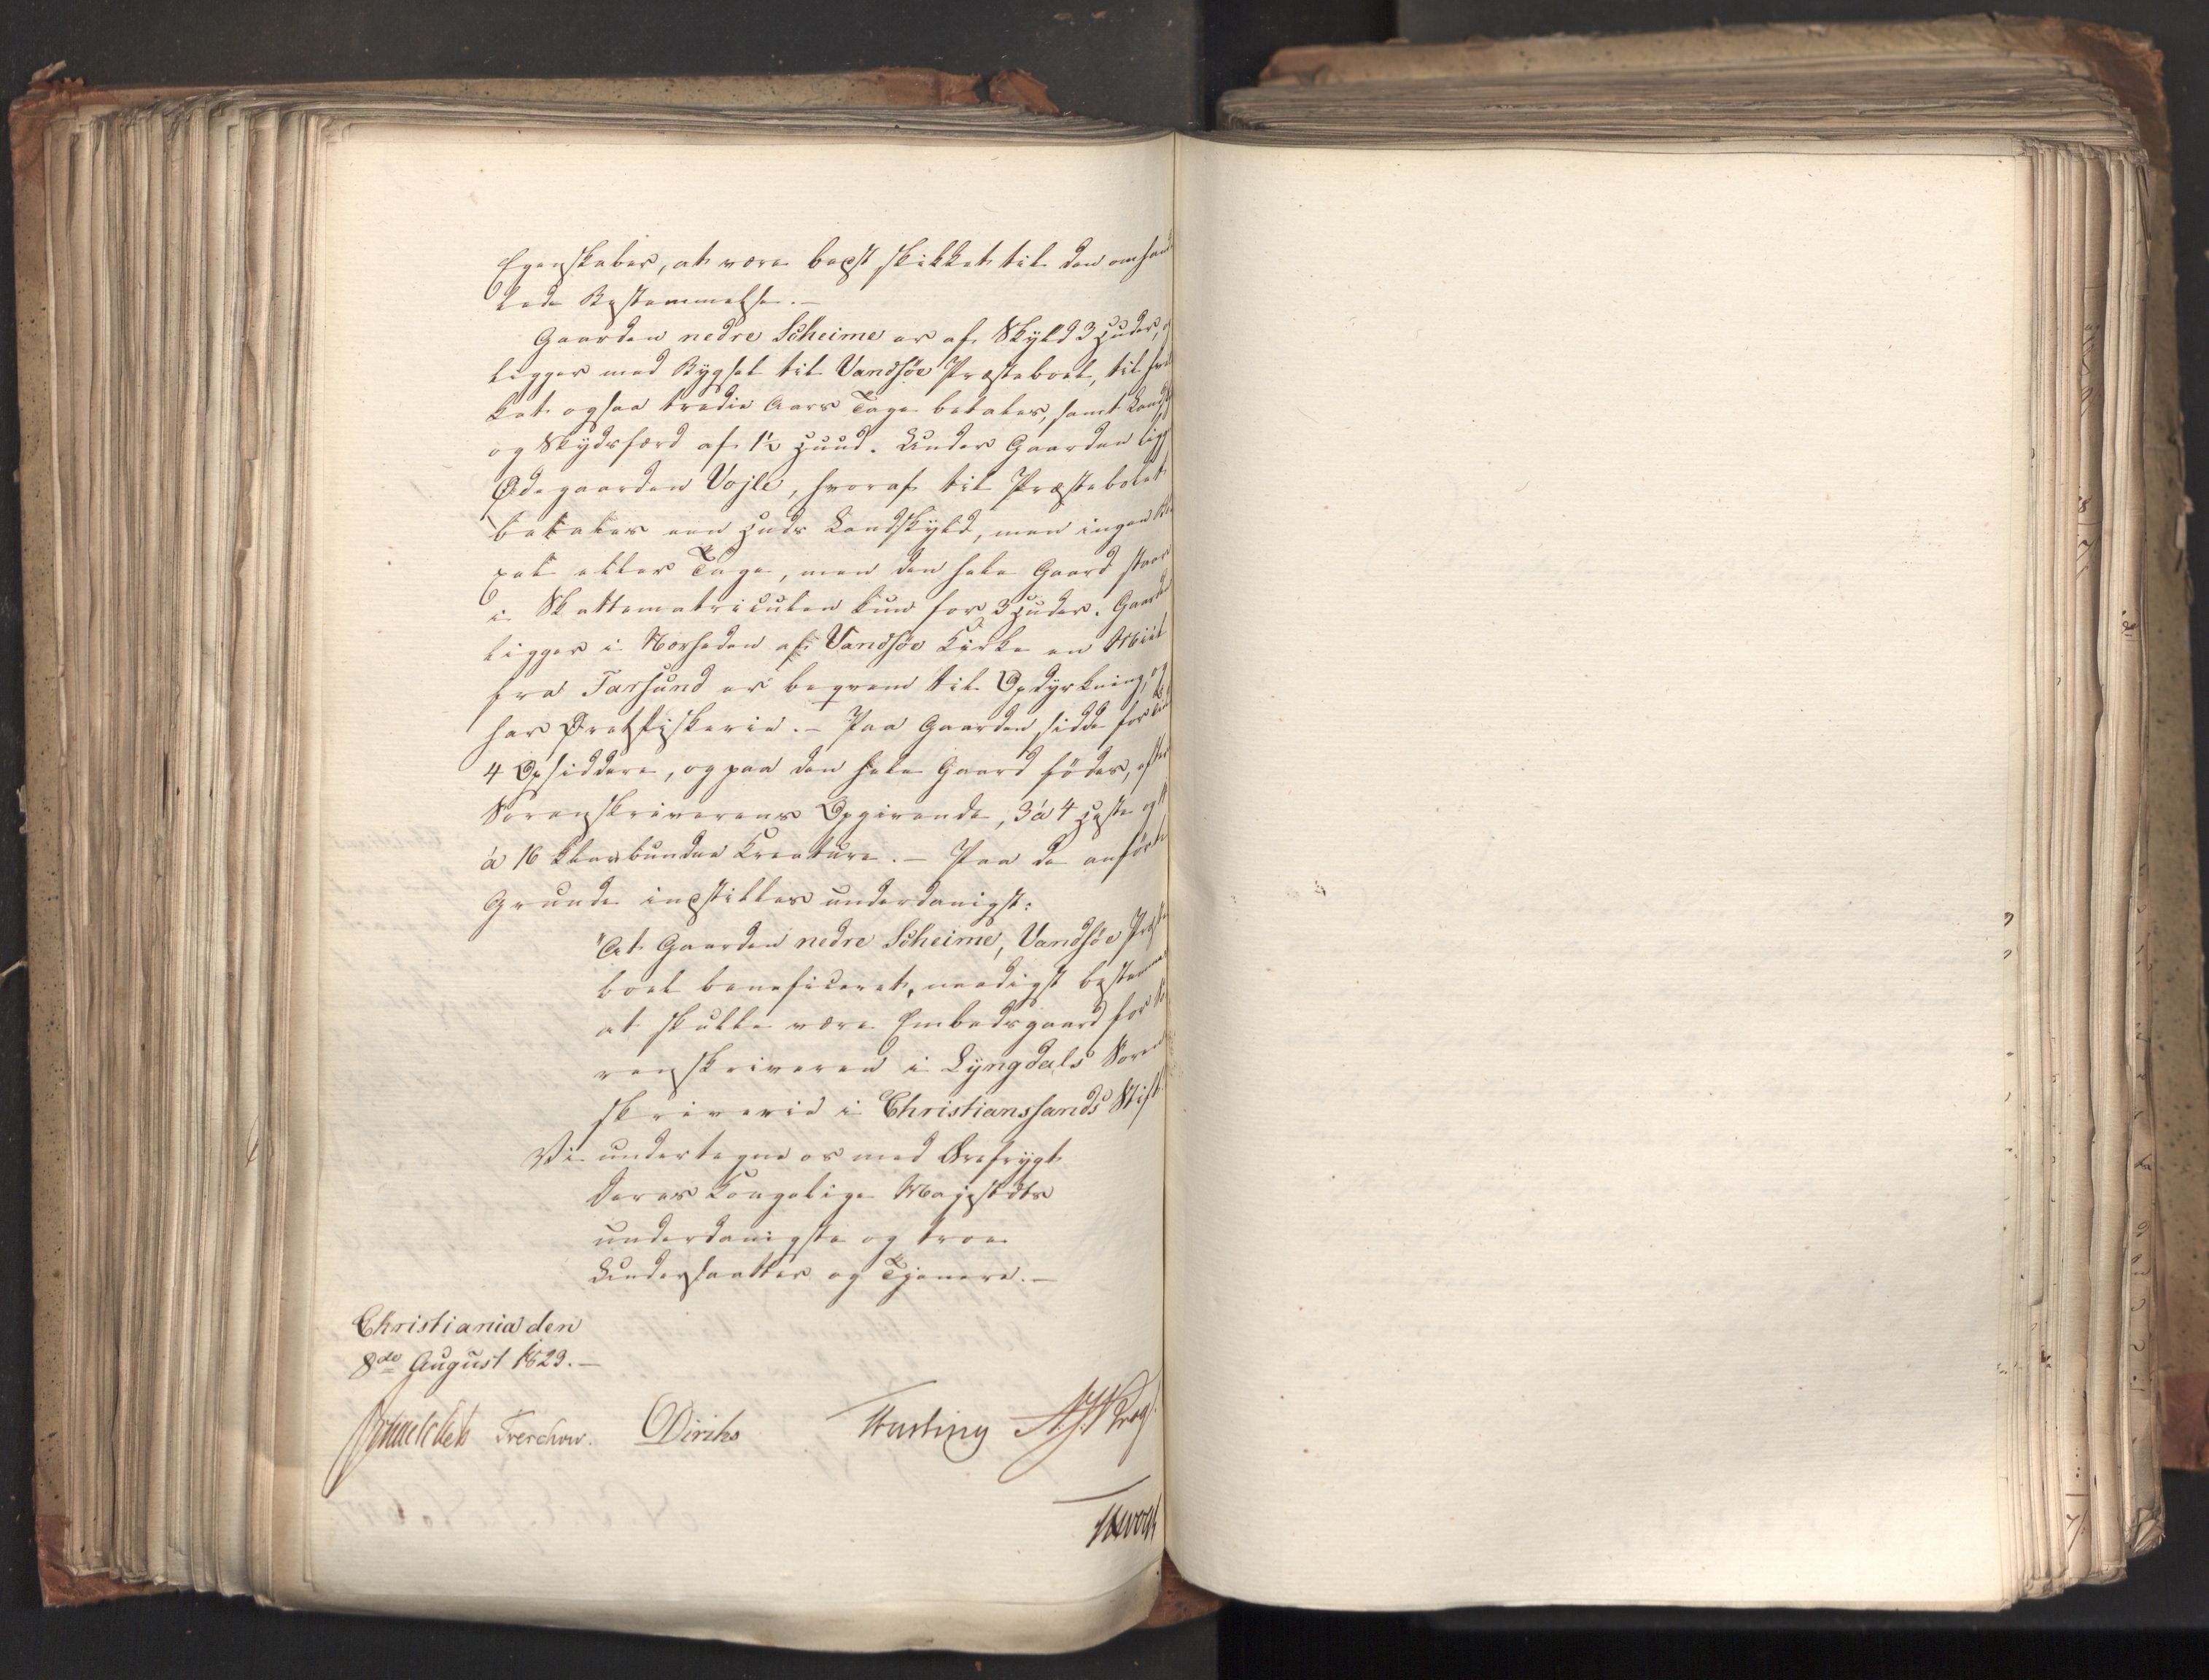 Egenskaber, at være best skikket til den omhand
lede Bestemmelse. —
Gaarden nedre Scheime er af Skyld 3 Huder, og
ligger med Bygsel til Vandsøe Præsteboel, til hvil
ket ogsaa tredie Aars Tage betales, samt Landsk
og Skydsfærd af 1½ Huud. Under Gaarden ligg
Ødegaarden Vojle, hvoraf til Præstebolet
betales een Huds Landskyld, men ingen
eller Tage, men den hele Gaard staar
i Skattematriculen kun for 3 Huder. Gaarden
ligger i Nærheden af Vandsøe Kirke en Miil
fra Farsund er beqvem til Opdyrkning, og
har Ørretfiskerie. — Paa Gaarden sidde for
4 Opsiddere, og paa den hele Gaard födes, efter
Sorenskriverens Opgivende, 3 à 4 Heste og
à 16 klovbundne Kreature. — Paa de anförte
Grunde indstilles underdanigst:
"At Gaarden nedre Scheime, Vandsöe Præste
boel beneficeret, naadigst bestemmes
at skulle være Embedsgaard for So
renskriveren i Lyngdals Soren
skriverie i Christianssands Stift
Vi undertegne os med Ærefrygt
Deres Kongelige Majestæts
underdanigste og troe
Undersaatter og Tjenere. —
Christiania den
8de August 1823. —
Treschow. Diriks